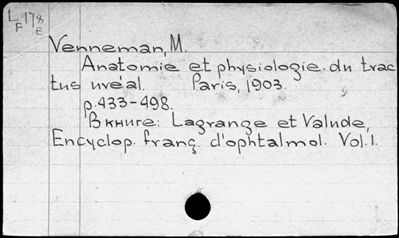 L 178
F E
Venneman, M.
Anatomie et physiologie du trac
tus uvéal. Paris, 1903.
p. 433-498.
В книге: Lagrange et Valude,
Encyclop. franç. d'ophtalmol. Vol. 1.